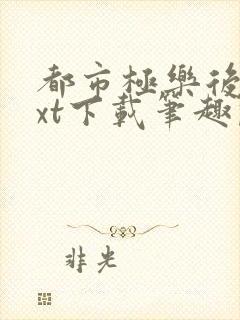 都市極樂後
xt下載筆趣
非光